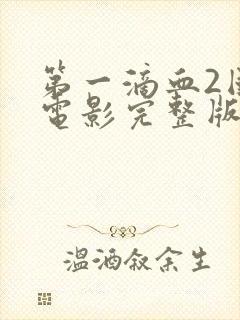 第一滴血2国
电影完整版
温酒叙余生